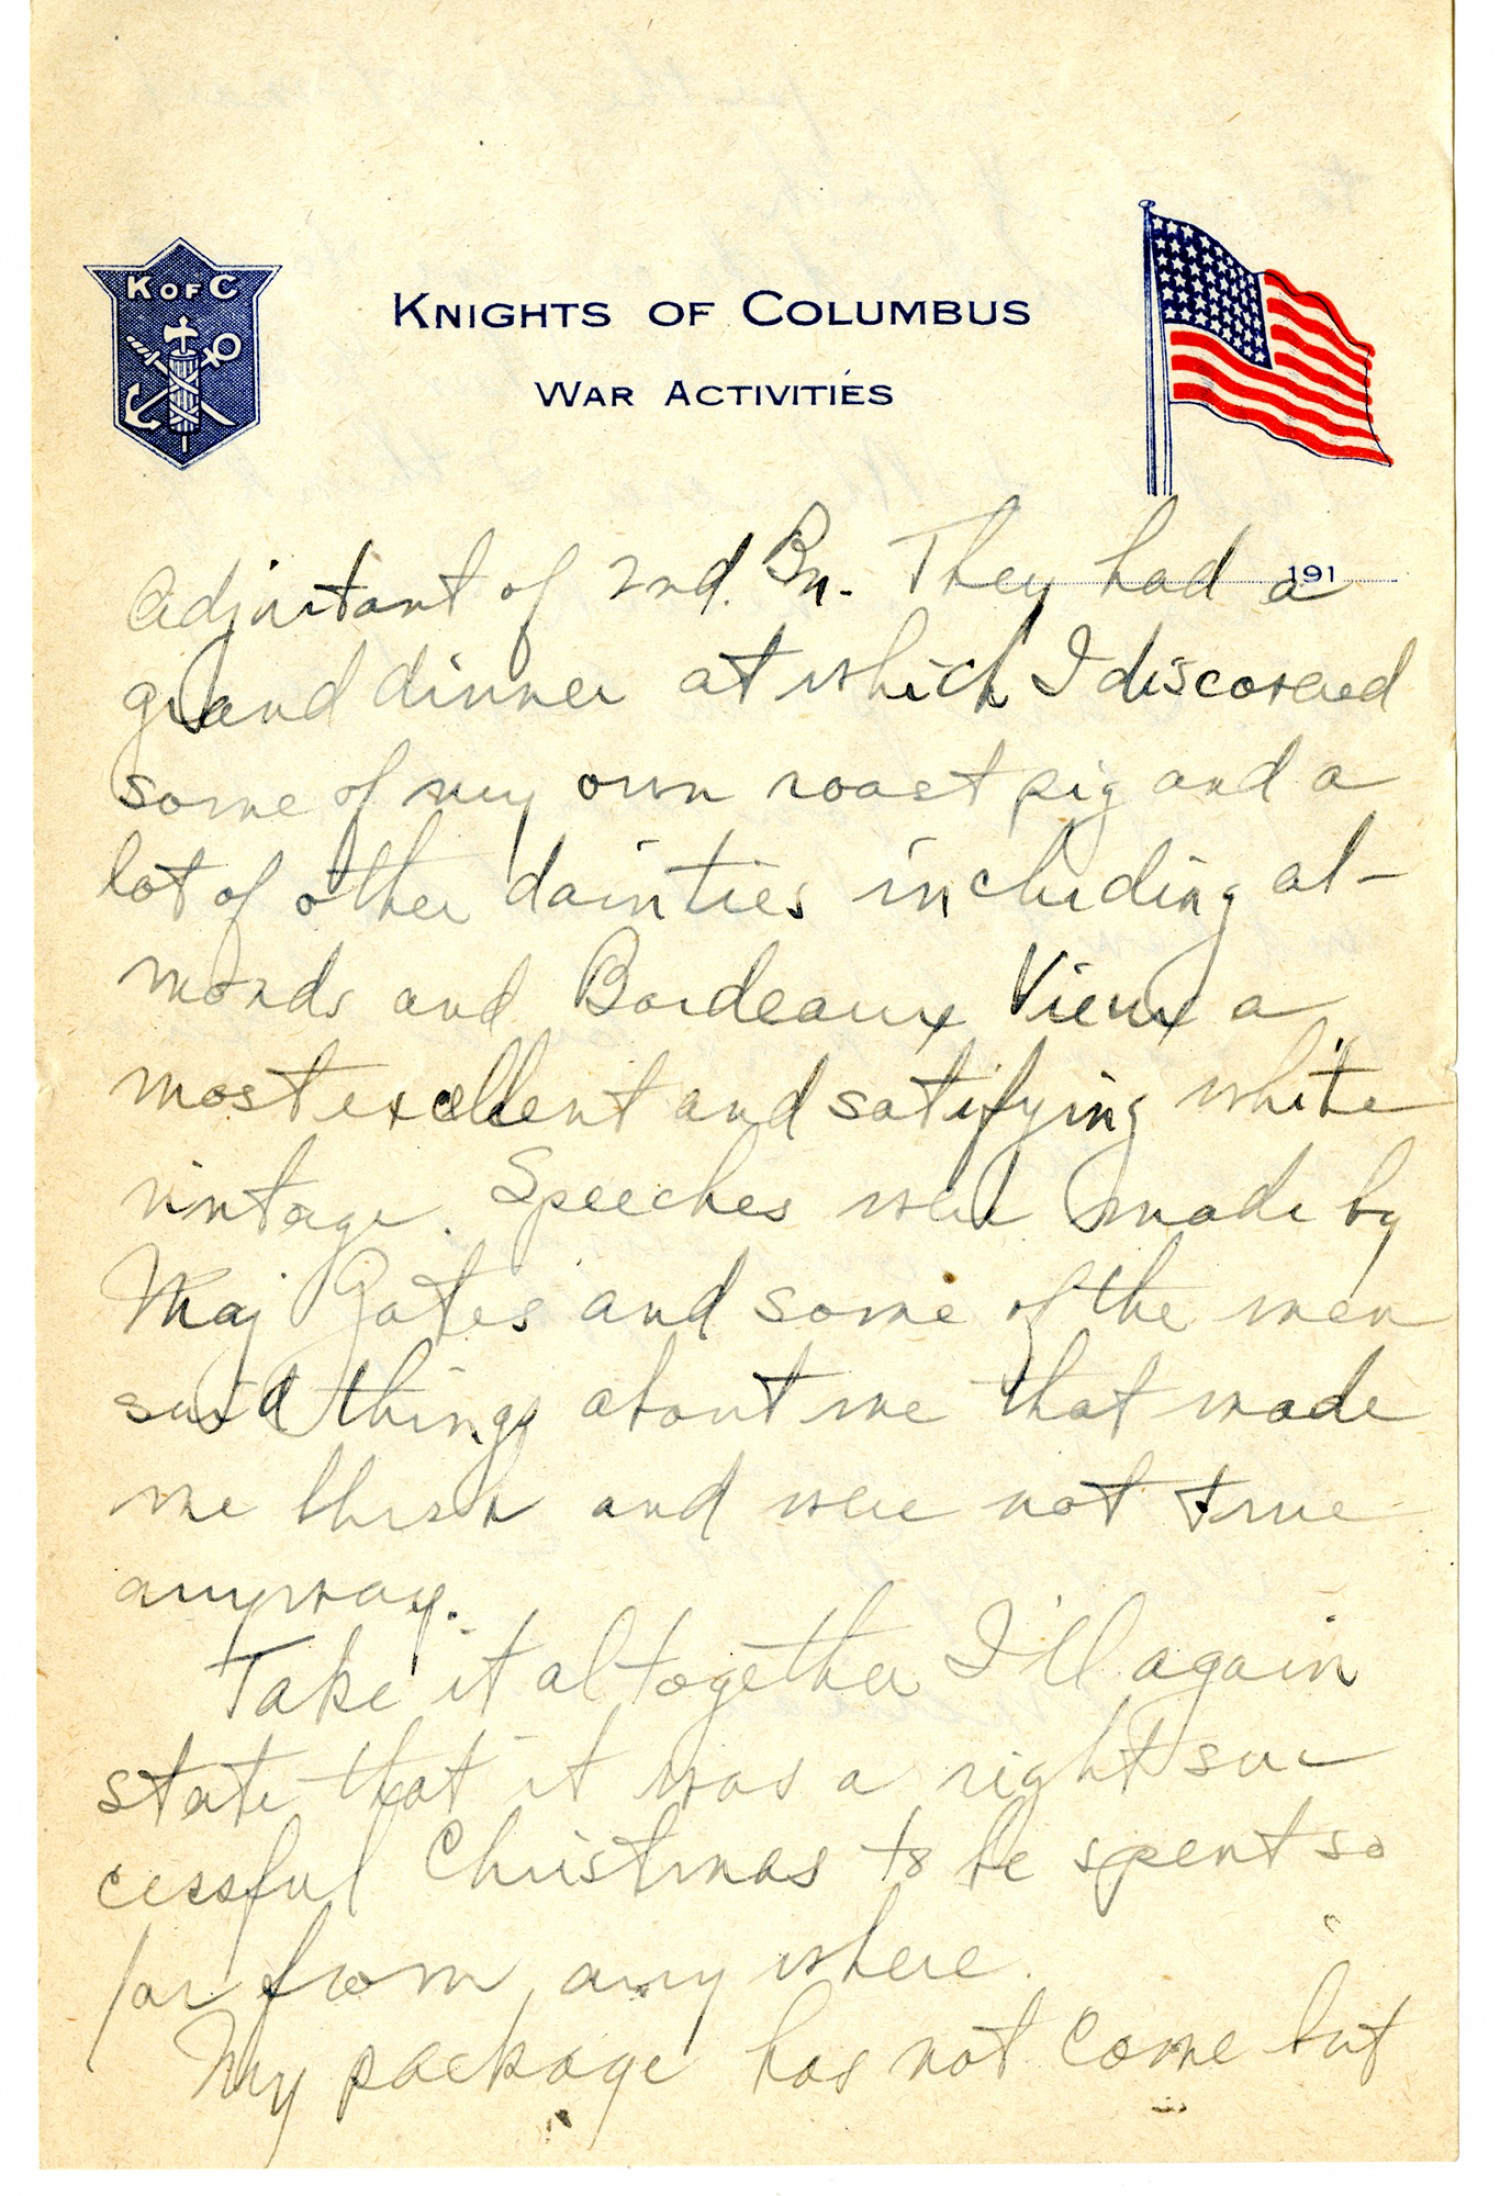 K OF C
KNIGHTS OF COLUMBUS
WAR ACTIVITIES
191
Adjutant of 2nd. Bn. They had a
grand dinner at which I discovered
some of my own roast pig and a
lot of other dainties including al-
monds and Bordeaux Vieux a
most excellent and satifying white
vintage. Speeches were made by
Maj Gates and some of the men
said things about me that made
me blush and were not true
anyway.
Take it altogether I'll again
state that it was a right suc
cessful Christmas to be spent so
far from any where.
My package has not come but